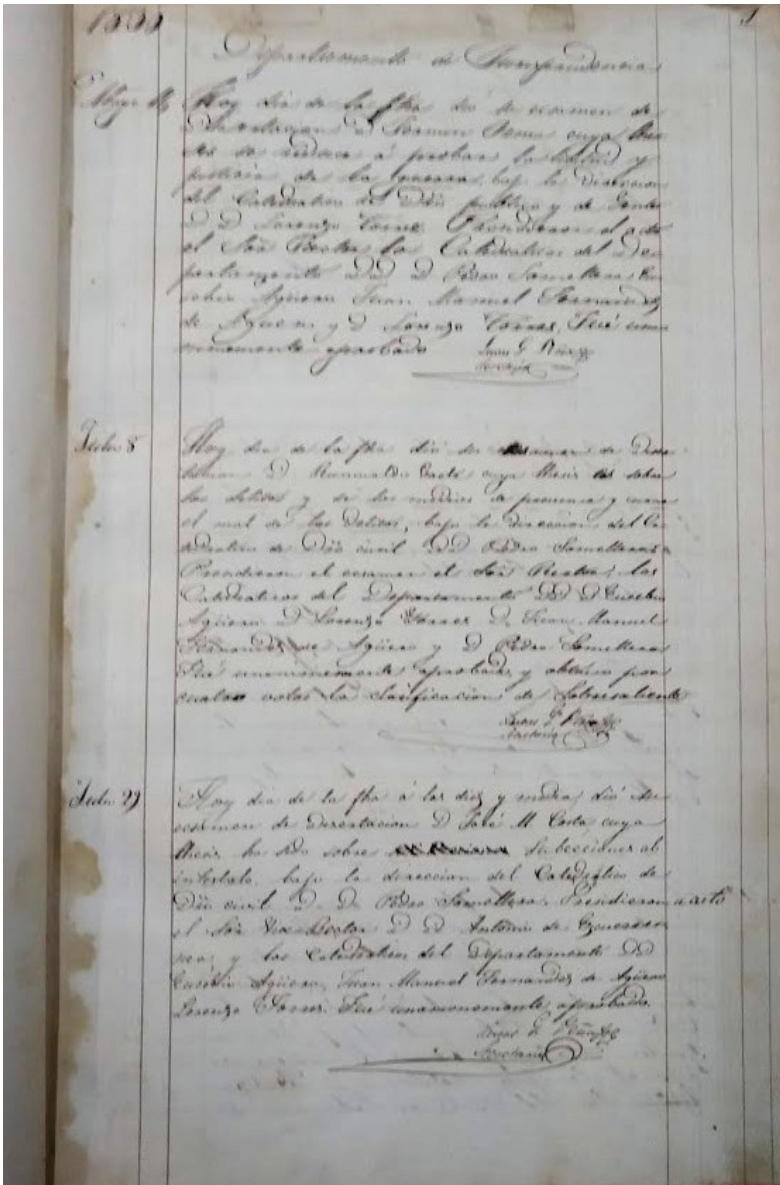 1
Departamento de Jurisprudencia
Mayo
Hoy dia de la fha dió su examen de
D. cuya
se reduce á probar la y
justicia de la guerra, bajo la direccion
del Catedratico del Dro publico y de Gentes
D. D. Lorenzo Torres. Presidieron el acto
el Sor Rector los Catedraticos del De
partamento DD. D. Pedro Somellera Eu
sebio Agüero Juan Manuel Fernandez
de Agüero y D. Lorenzo Torres. Fué una
nimemente aprobado
Secretario
8
Hoy dia de la fha dió su examen de
D. Rumualdo cuya thesis sobre
los delitos y de los medios de y
el mal de los delitos, bajo la direccion del Ca
tedratico de Dro civil DD. Pedro Somellera
Presidieron el examen el Sor Rector, los
Catedraticos del Departamento DD. D. Eusebio
Agüero D. Lorenzo Torres D. Juan Manuel
Fernandez de Agüero y D. Pedro Somellera
Fué unanimemente aprobado, y obtuvo por
cuatro votos la clasificacion de Sobresaliente
Secretario
29
Hoy dia de la fha á las diez y media dió su
examen de Disertacion D. José M. Costa cuya
thesis ha sido sobre al
intestato, bajo la direccion del Catedratico de
Dro civil D. D. Pedro Somellera. Presidieron el acto
el Sor Vice-Rector D. D. Antonio de
y los Catedraticos del Departamento DD.
Eusebio Agüero, Juan Manuel Fernandez de Agüero
Lorenzo Torres. Fué unanimemente aprobado.
Secretario